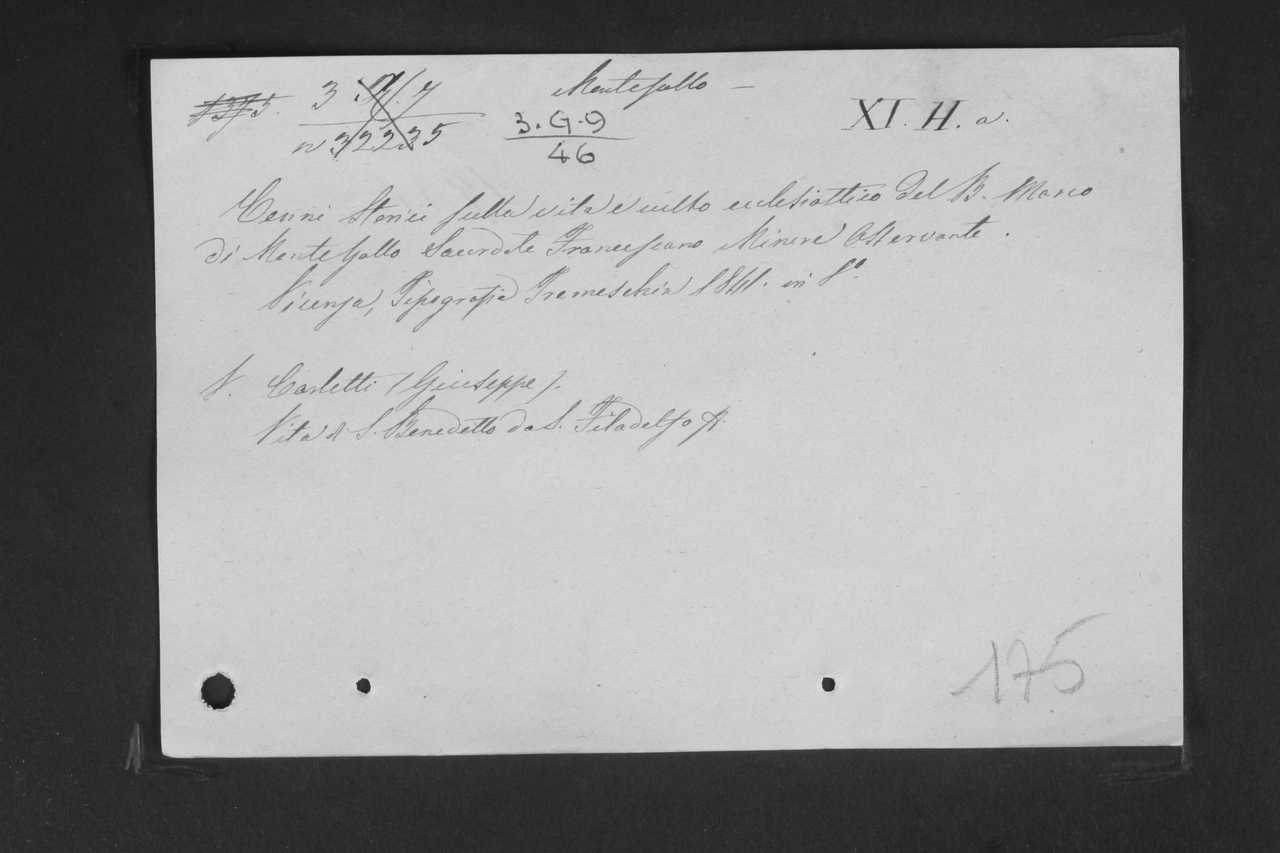 Montegallo —
1375. 3. 7. 7
n 32235
3. G. 9
46
XI. H. a.
Cenni Storici sulla vita e culto ecclesiastico del B. Marco
di Montegallo Sacerdote Francescano Minore Osservante.
Vicenza, Tipografia Tremeschin 1841. in 8.°
V. Carletti (Giuseppe).
Vita di S. Benedetto da S. Filadelfo
175